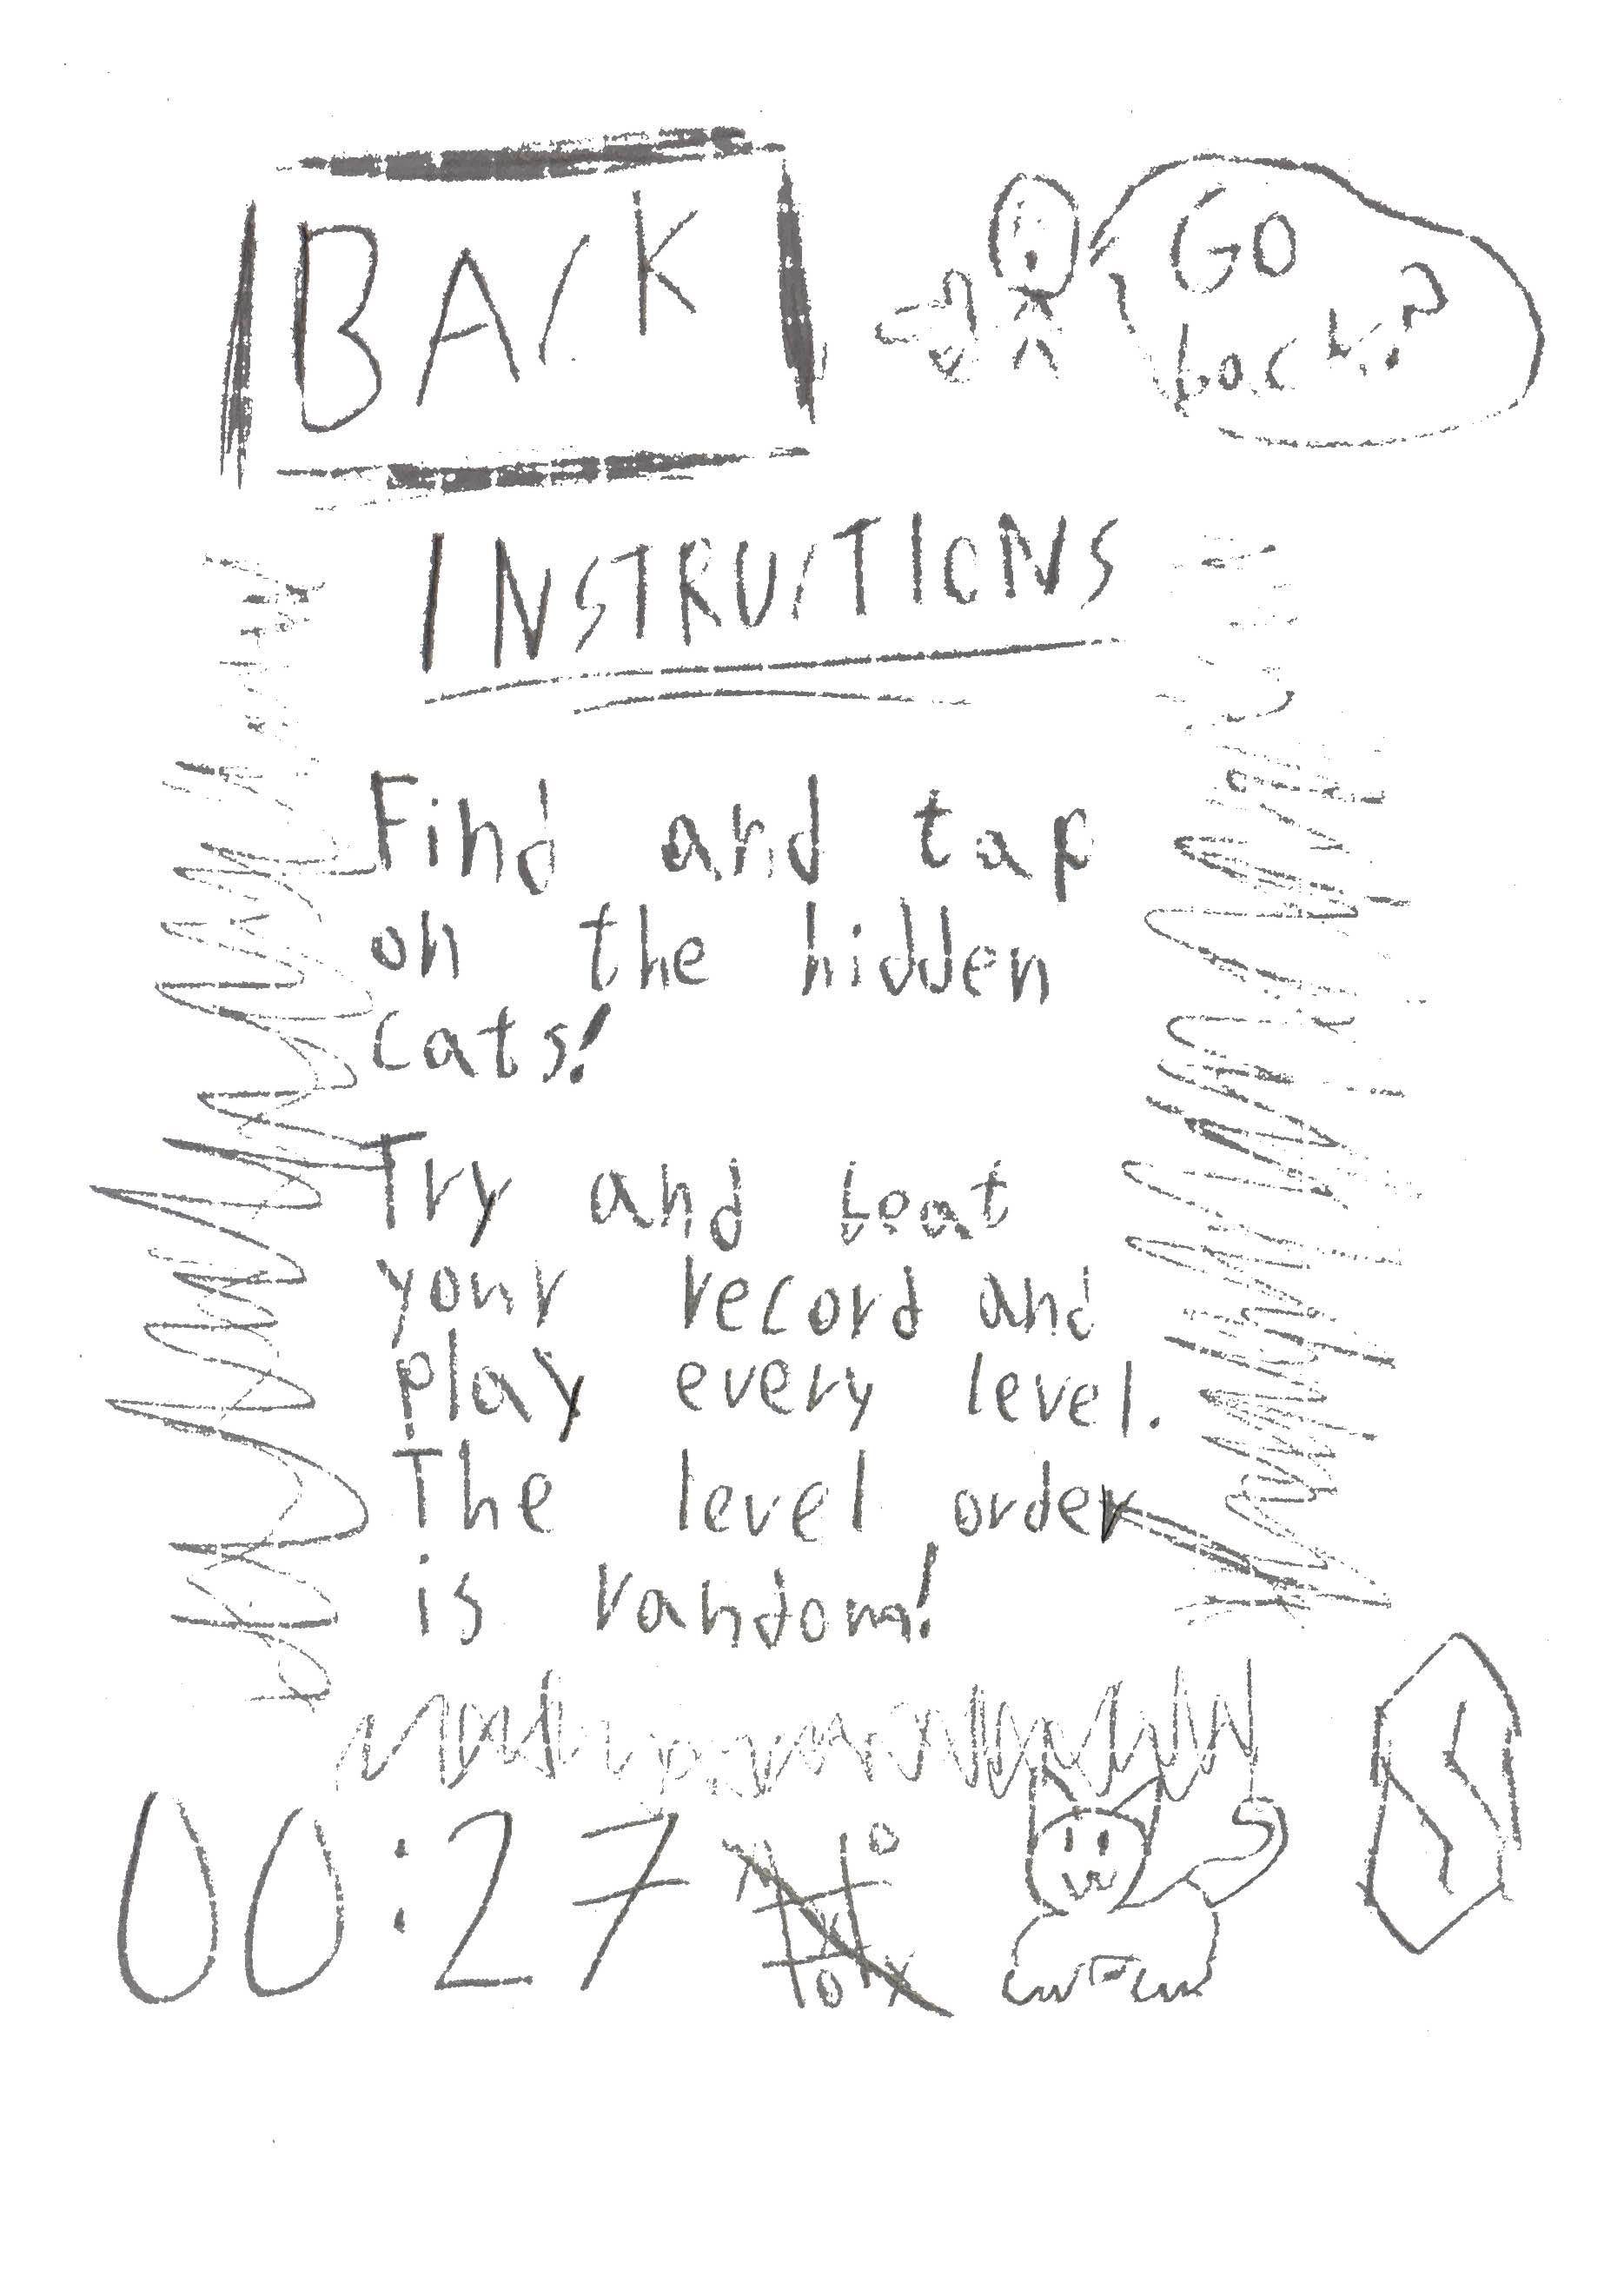 BACK
Go
back?
INSTRUCTIONS
Find and tap
on the hidden
cats!
Try and beat
your record and
play every level.
The level order
is random!
00:27
X O
X
O X